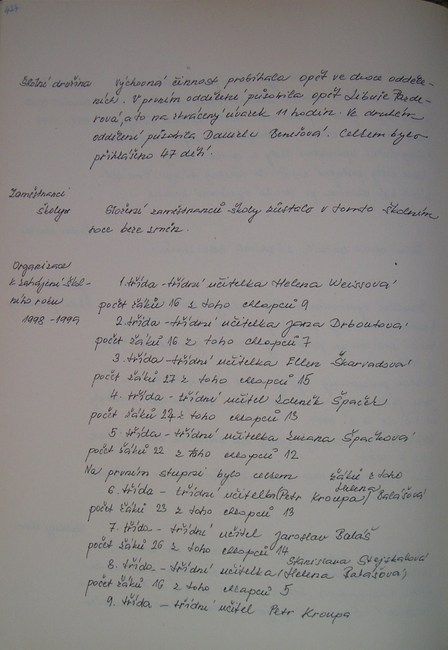 Školní družina Výchovná činnost probíhala opět ve dvou odděle-
ních. V prvním oddělení působila opět Libuše
rová, a to na zkrácený úvazek 11 hodin. Ve druhém
oddělení působila Daniela Benešová. Celkem bylo
přihlášeno 47 dětí.
Zaměstnanci
školy Složení zaměstnanců školy zůstalo v tomto školním
roce beze změn.
Organizace
k zahájení škol-
ního roku
1998-1999
1. třída - třídní učitelka Helena Weissová
počet žáků 16 z toho chlapců 9
2. třída - třídní učitelka Jana Drboutová
počet žáků 16 z toho chlapců 7
3. třída - třídní učitelka Ellen Škarvadová
počet žáků 27 z toho chlapců 15
4. třída - třídní učitel Zdeněk Špaček
počet žáků 22 z toho chlapců 13
5. třída - třídní učitelka Zuzana Špačková
počet žáků 22 z toho chlapců 12
Na prvním stupni bylo celkem žáků z toho
6. třída - třídní učitelka (Petr Kroupa) Helena Balášová
počet žáků 23 z toho chlapců 13
7. třída - třídní učitel Jaroslav Baláš
počet žáků 26 z toho chlapců 14
Stanislava Stejskalová
8. třída - třídní učitelka (Helena Balášová)
počet žáků 16 z toho chlapců 5
9. třída - třídní učitel Petr Kroupa